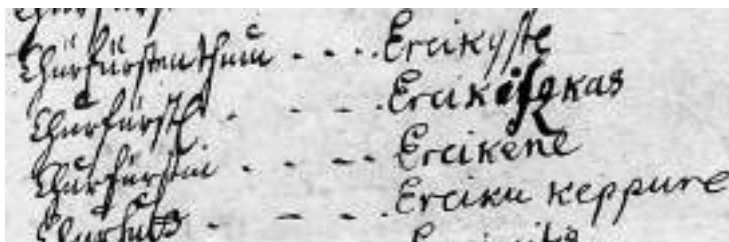 Churfürstenthum - - - . Ercikyste
Churfürstl. - - - . Ercikiſgkas
Churfürstin - - - - Ercikene
Churhutt - - - - Erciku keppure